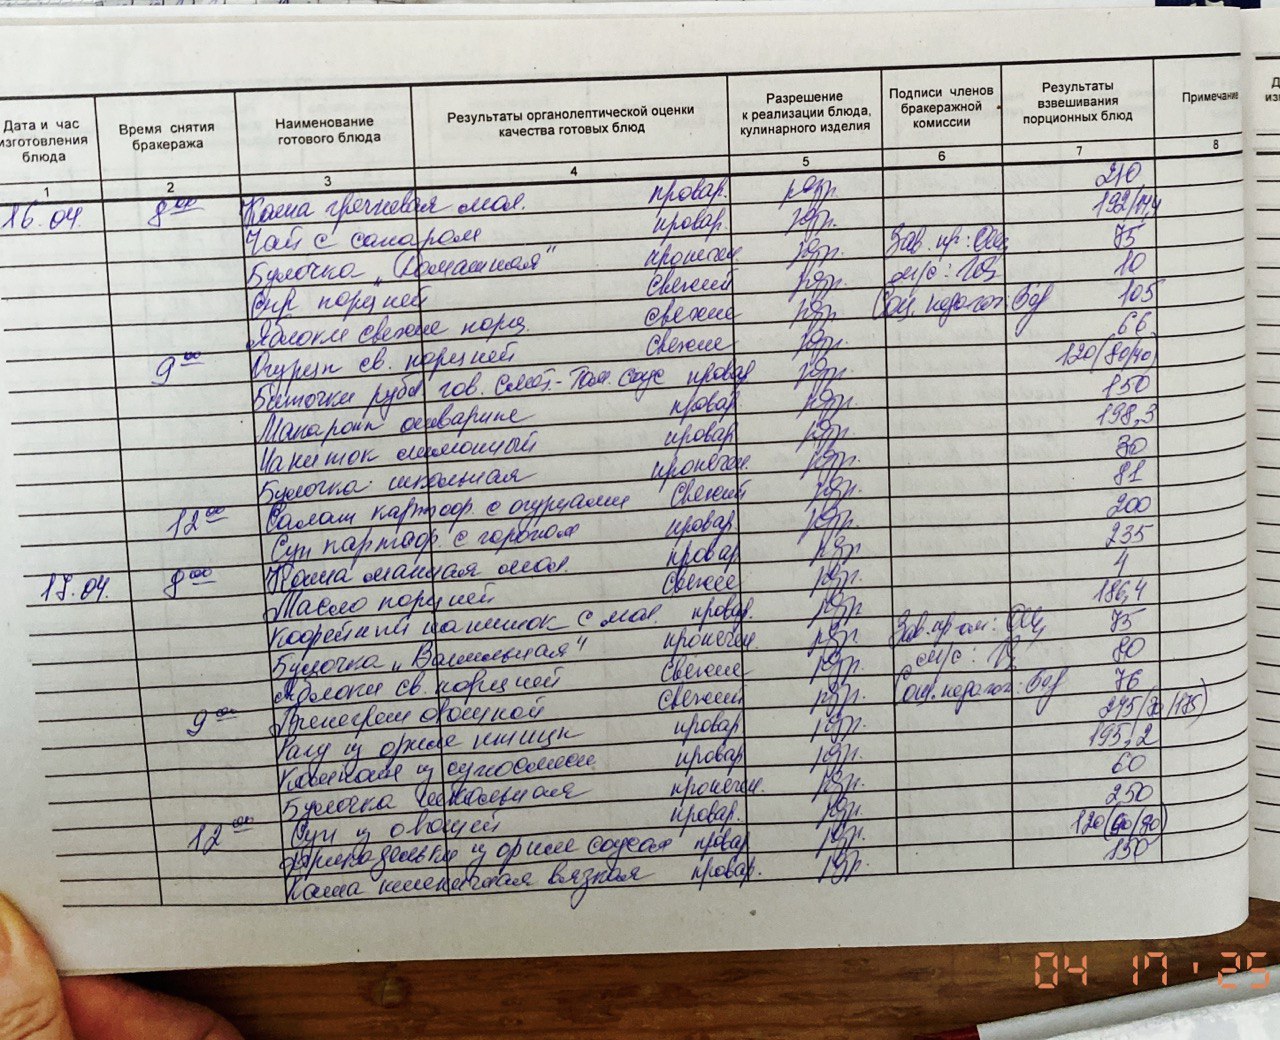 Дата и час изготовления блюда
Время снятия бракеража
Наименование готового блюда
Результаты органолептической оценки качества готовых блюд
Разрешение к реализации блюда, кулинарного изделия
Подписи членов бракеражной комиссии
Результаты взвешивания порционных блюд
Примечание
1 2 3 4 5 6 7 8
16.04. 8 00 Каша гречневая мол. провар. разр. 210
Чай с сахаром провар. разр. 192/14,4
Булочка "Домашняя" пропечен разр. Зав. пр: 75
Сыр порцией свежий разр. м/с: 10
Яблоки свежие порц. свежие разр. Соц. педагог: 105
9 00 Огурцы св. порцией свежие разр. 66
Биточки рубл. гов. смет.-том. соус провар разр. 120(80/40)
Макароны отварные провар разр. 150
Напиток лимонный провар разр. 198,3
Булочка школьная пропечен. разр. 30
12 00 Салат картоф. с огурцами свежий разр. 81
Суп картоф. с горохом провар разр. 200
17.04. 8 00 Каша манная мол. провар разр. 235
Масло порцией свежие разр. 4
Кофейный напиток с мол. провар. разр. 186,4
Булочка "Ванильная" пропечен. разр. Зав. пр-ом: 75
Яблоки св. порцией свежие разр. м/с: 80
9 00 Винегрет овощной свежий разр. Соц. педагог: 76
Рагу из филе птицы провар разр. 245/
Компот из сухосмеси провар разр. 195,2
Булочка школьная пропечен. разр. 60
12 00 Суп из овощей провар. разр. 250
Фрикадельки из филе соусом провар разр. 120
Каша пшеничная вязкая провар. разр. 150
04 17 '25